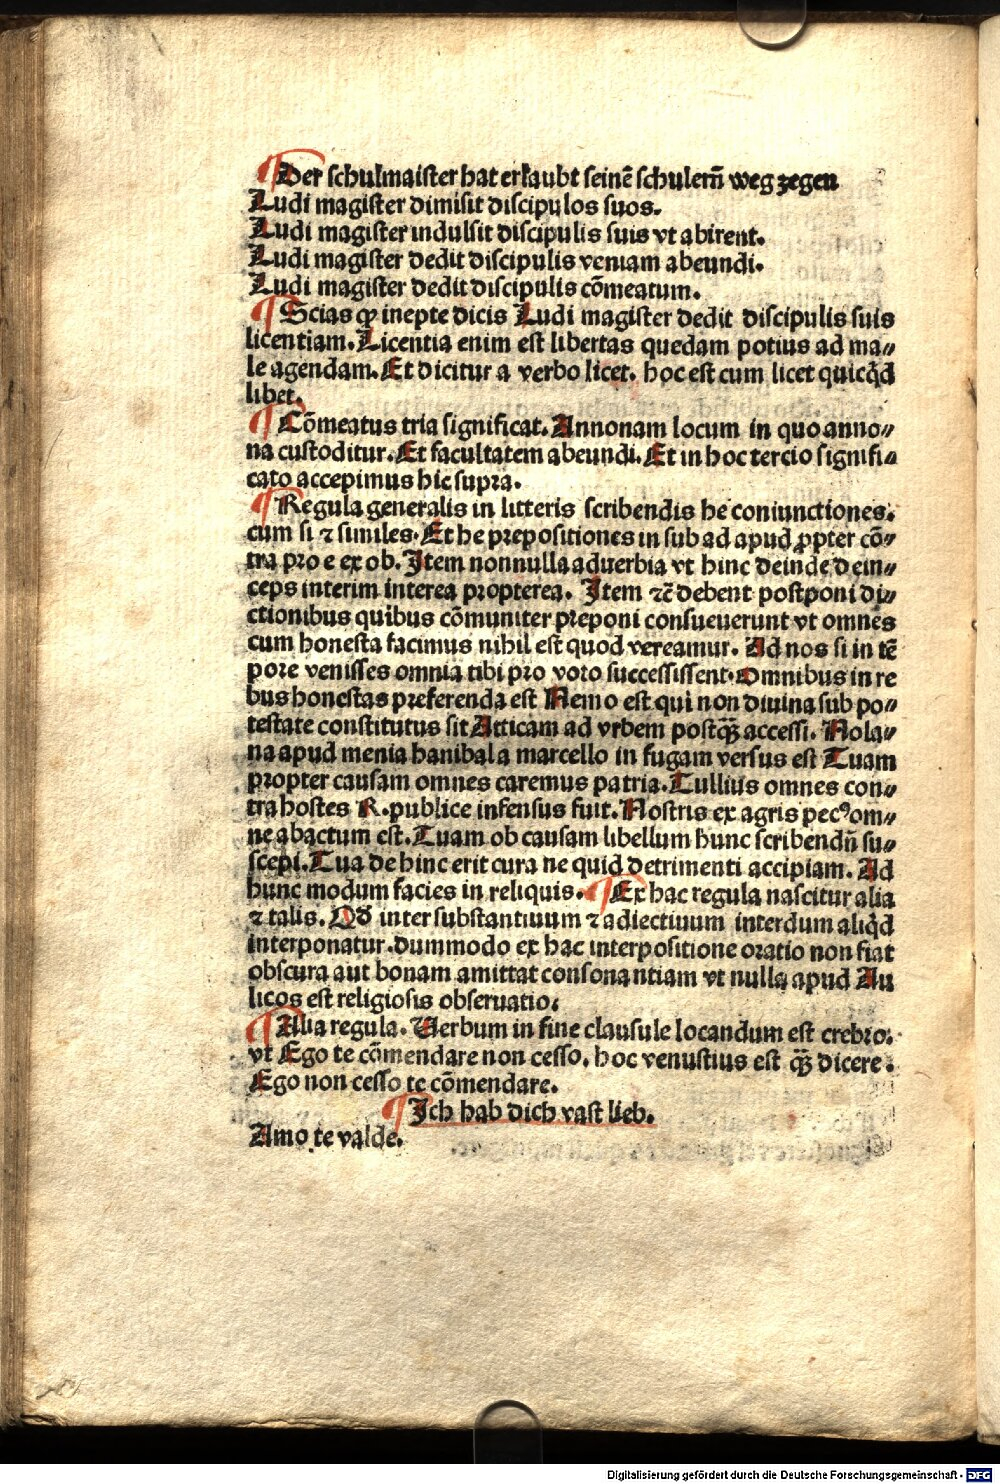 ¶ Der schulmaister hat erlaubt seinē schulern̄ weg zegen
Ludi magister dimisit discipulos suos.
Ludi magister indulsit discipulis suis vt abirent.
Ludi magister dedit discipulis veniam abeundi.
Ludi magister dedit discipulis cōmeatum.
¶ Scias ꝙ inepte dicis Ludi magister dedit discipulis suis
licentiam. Licentia enim est libertas quedam potius ad ma⸗
le agendam. Et dicitur a verbo licet. hoc est cum licet quicq̇d
libet.
¶ Cōmeatus tria significat. Annonam locum in quo anno⸗
na custoditur. Et facultatem abeundi. Et in hoc tercio signifi⸗
cato accepimus hic supra.
¶ Regula generalis in litteris scribendis he coniunctiones.
cum si ⁊ similes. Et he prepositiones in sub ad apud ꝓpter cō⸗
tra pro e ex ob. Item nonnulla aduerbia vt hinc deinde dein⸗
ceps interim interea propterea. Item ⁊c̄ debent postponi di⸗
ctionibus quibus cōmuniter preponi consueuerunt vt omnes
cum honesta facimus nihil est quod vereamur. Ad nos si in tē
pore venisses omnia tibi pro voto successissent. Omnibus in re
bus honestas preferenda est Nemo est qui non diuina sub po⸗
testate constitutus sit Atticam ad vrbem postꝙ̄ accessi. Nola⸗
na apud menia hanibal a marcello in fugam versus est Tuam
propter causam omnes caremus patria. Tullius omnes con⸗
tra hostes R. publice infensus fuit. Nostris ex agris pecꝰ om⸗
ne abactum est. Tuam ob causam libellum hunc scribendū su⸗
scepi. Tua de hinc erit cura ne quid detrimenti accipiam. Ad
hunc modum facies in reliquis. ¶ Ex hac regula nascitur alia
⁊ talis. Qd̄ inter substantiuum ⁊ adiectiuum interdum aliq̇d
interponatur. dummodo ex hac interpositione oratio non fiat
obscura aut bonam amittat consonantiam vt nulla apud Au
licos est religiosis obseruatio.
¶ Alia regula. Verbum in fine clausule locandum est crebro.
vt Ego te cōmendare non cesso. hoc venustius est ꝙ̄ dicere.
Ego non cesso te cōmendare.
¶ Ich hab dich vast lieb.
Amo te valde.
Digitalisierung gefördert durch die Deutsche Forschungsgemeinschaft - DFG